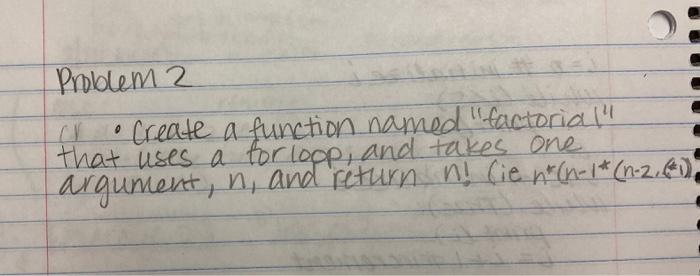 Problem 2
• Create a function named "factorial"
that uses a for lopp, and takes one
argument, n, and return n! (ie n*(n-1*(n-2,